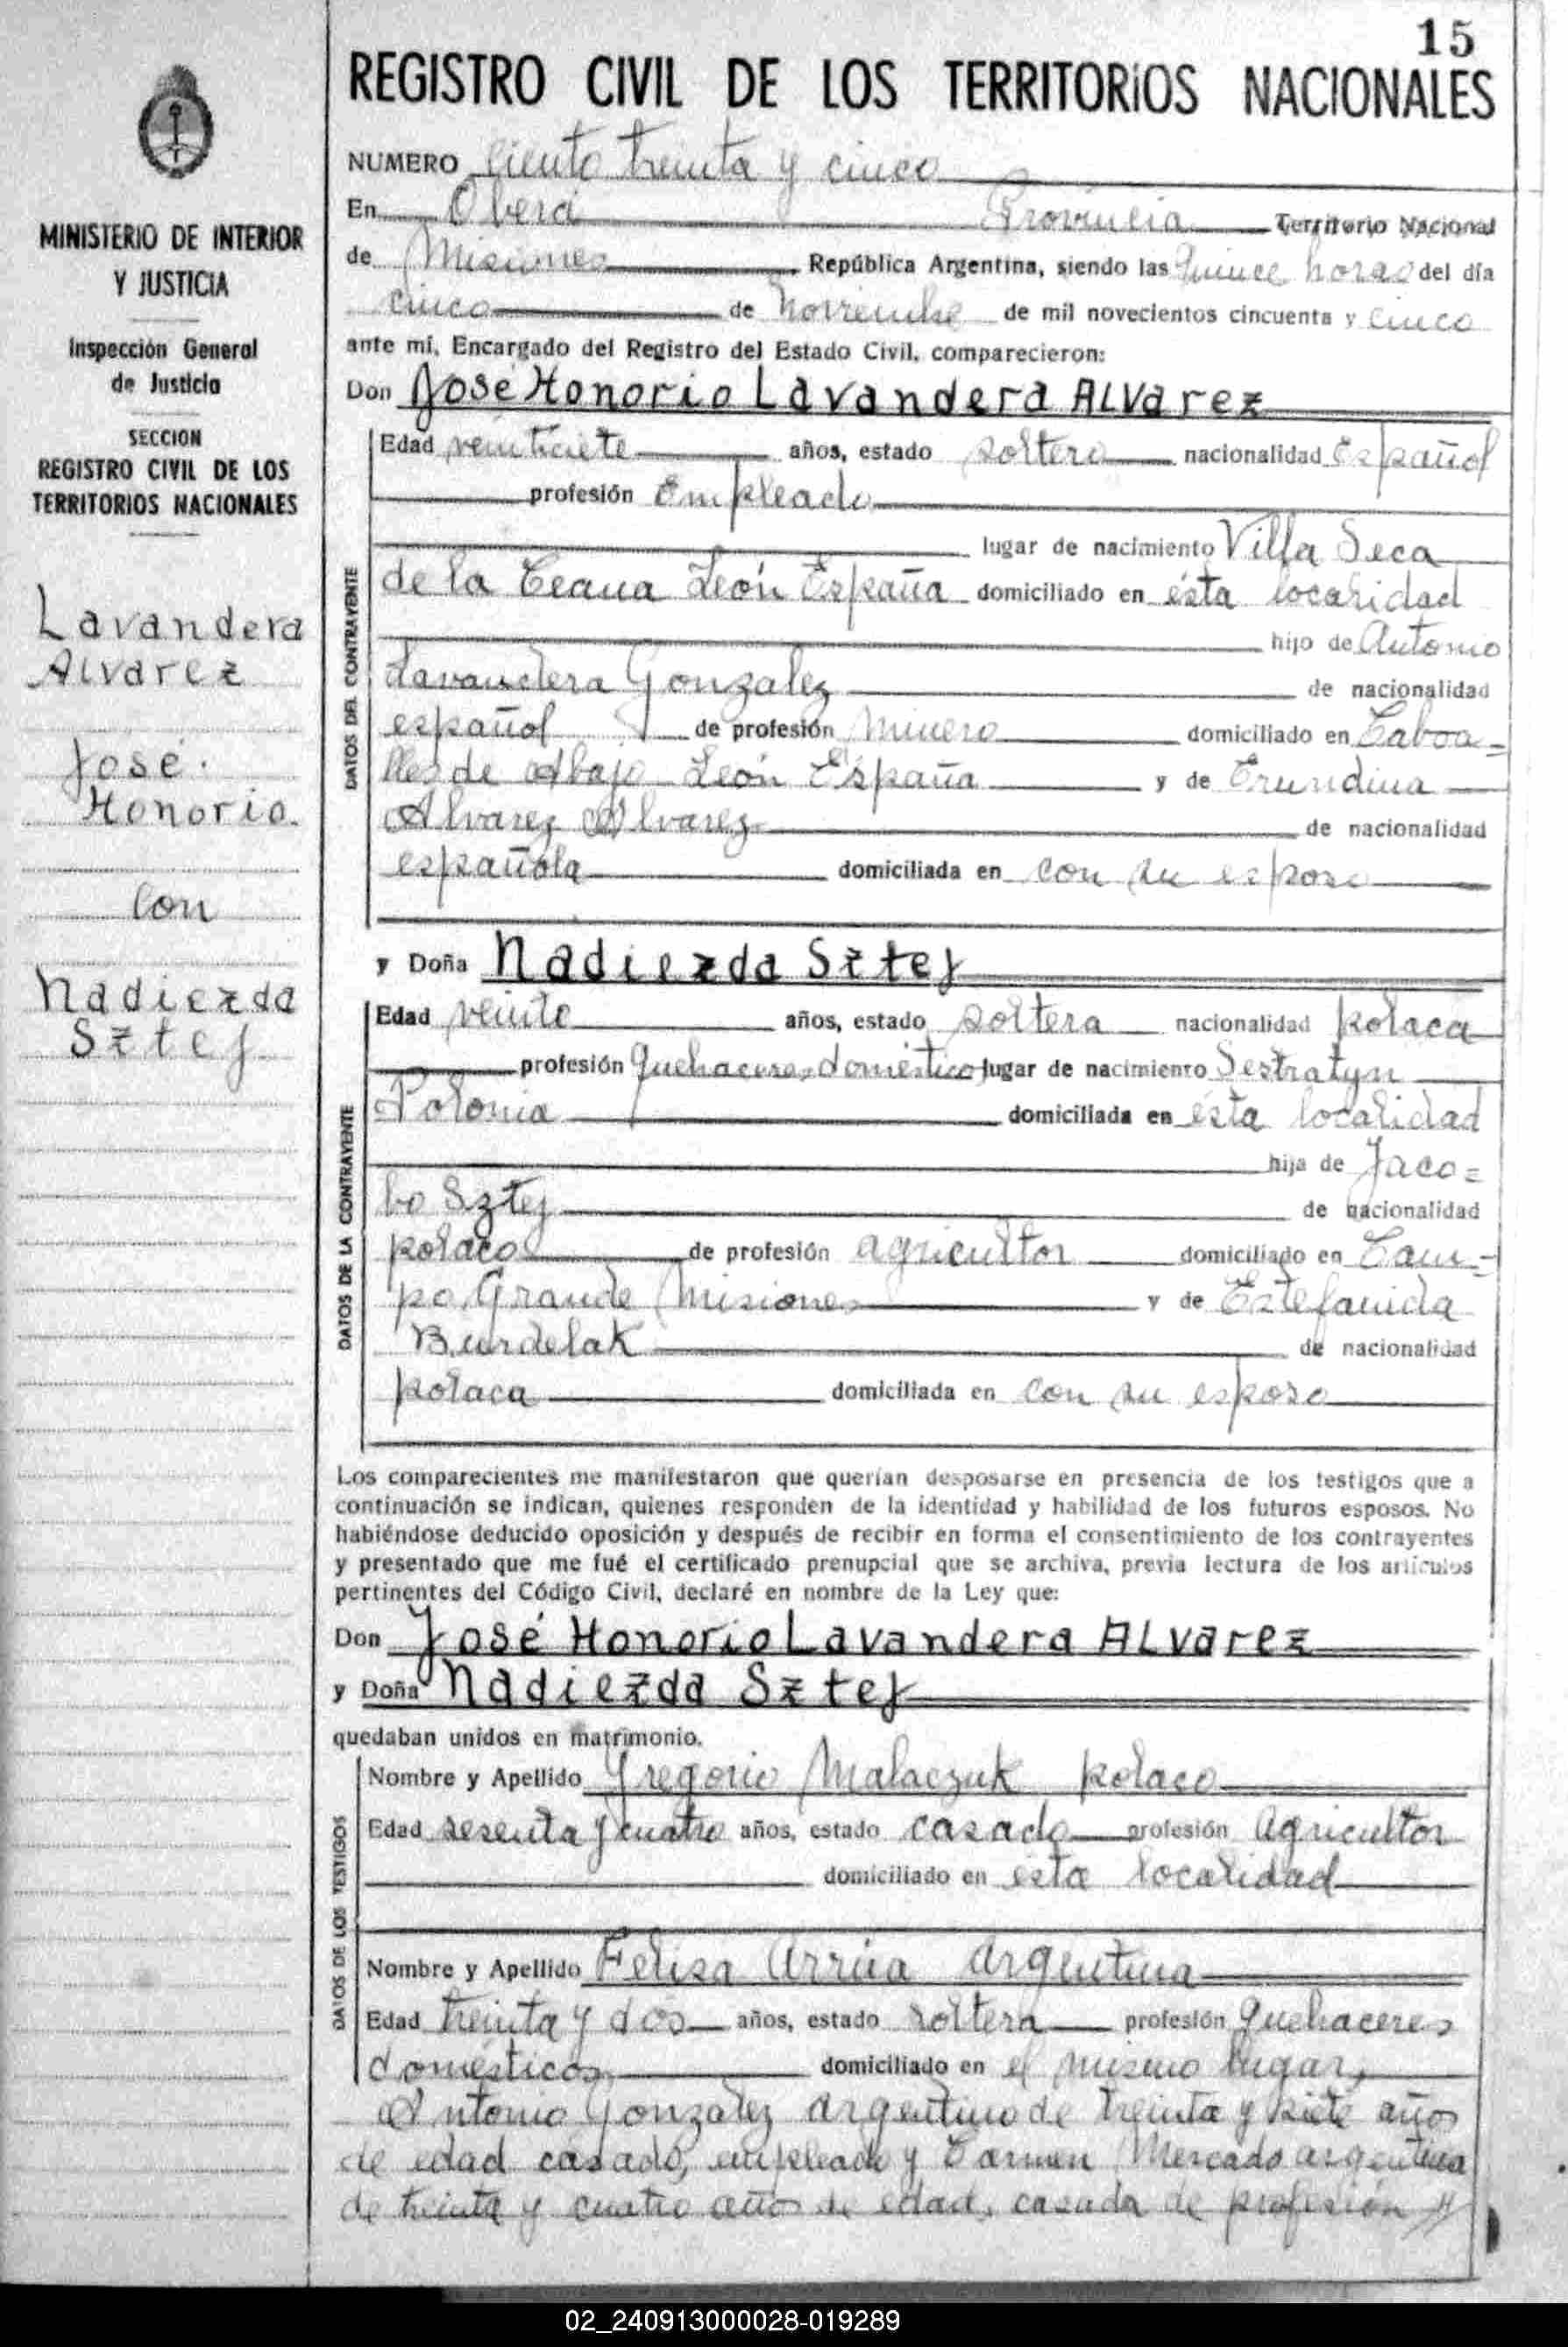 15
REGISTRO CIVIL DE LOS TERRITORIOS NACIONALES
MINISTERIO DE INTERIOR
Y JUSTICIA
Inspección General
de Justicia
SECCION
REGISTRO CIVIL DE LOS
TERRITORIOS NACIONALES
Lavandera
Alvarez
José
Honorio.
Con
Nadiezda
Sztej
NUMERO Ciento treinta y cinco
En Oberá Provincia Territorio Nacional
de Misiones República Argentina, siendo las quince horas del día
cinco de noviembre de mil novecientos cincuenta y cinco
ante mi, Encargado del Registro del Estado Civil, comparecieron:
Don José Honorio Lavandera Alvarez
DATOS DEL CONTRAYENTE
Edad veintisiete años, estado soltero nacionalidad Español
profesión Empleado
lugar de nacimiento Villa Seca
de la Ceana León España domiciliado en ésta localidad
hijo de Antonio
Lavandera Gonzalez de nacionalidad
español de profesión Minero domiciliado en Caboa=
lles de Abajo León España y de Erundina
Alvarez Alvarez de nacionalidad
española domiciliada en con su esposo
y Doña Nadiezda Sztej
DATOS DE LA CONTRAYENTE
Edad veinte años, estado soltera nacionalidad polaca
profesión Quehaceres domésticos lugar de nacimiento Sestratyn
Polonia domiciliada en ésta localidad
hija de Jaco=
bo Sztej de nacionalidad
polaco de profesión agricultor domiciliado en Cam=
po Grande Misiones y de Estefanida
Burdelak de nacionalidad
polaca domiciliada en con su esposo
Los comparecientes me manifestaron que querían desposarse en presencia de los testigos que a
continuación se indican, quienes responden de la identidad y habilidad de los futuros esposos. No
habiéndose deducido oposición y después de recibir en forma el consentimiento de los contrayentes
y presentado que me fué el certificado prenupcial que se archiva, previa lectura de los artículos
pertinentes del Código Civil, declaré en nombre de la Ley que:
Don José Honorio Lavandera Alvarez
y Doña Nadiezda Sztej
quedaban unidos en matrimonio.
DATOS DE LOS TESTIGOS
Nombre y Apellido Gregorio Malaczuk polaco
Edad sesenta y cuatro años, estado casado profesión Agricultor
domiciliado en ésta localidad
Nombre y Apellido Felisa Arrúa argentina
Edad treinta y dos años, estado soltera profesión Quehaceres
domésticos domiciliado en el mismo lugar,
Antonio Gonzalez argentino de treinta y siete años
de edad casado, empleado y Carmen Mercado argentina
de treinta y cuatro años de edad, casada de profesión //
02_240913000028-019289